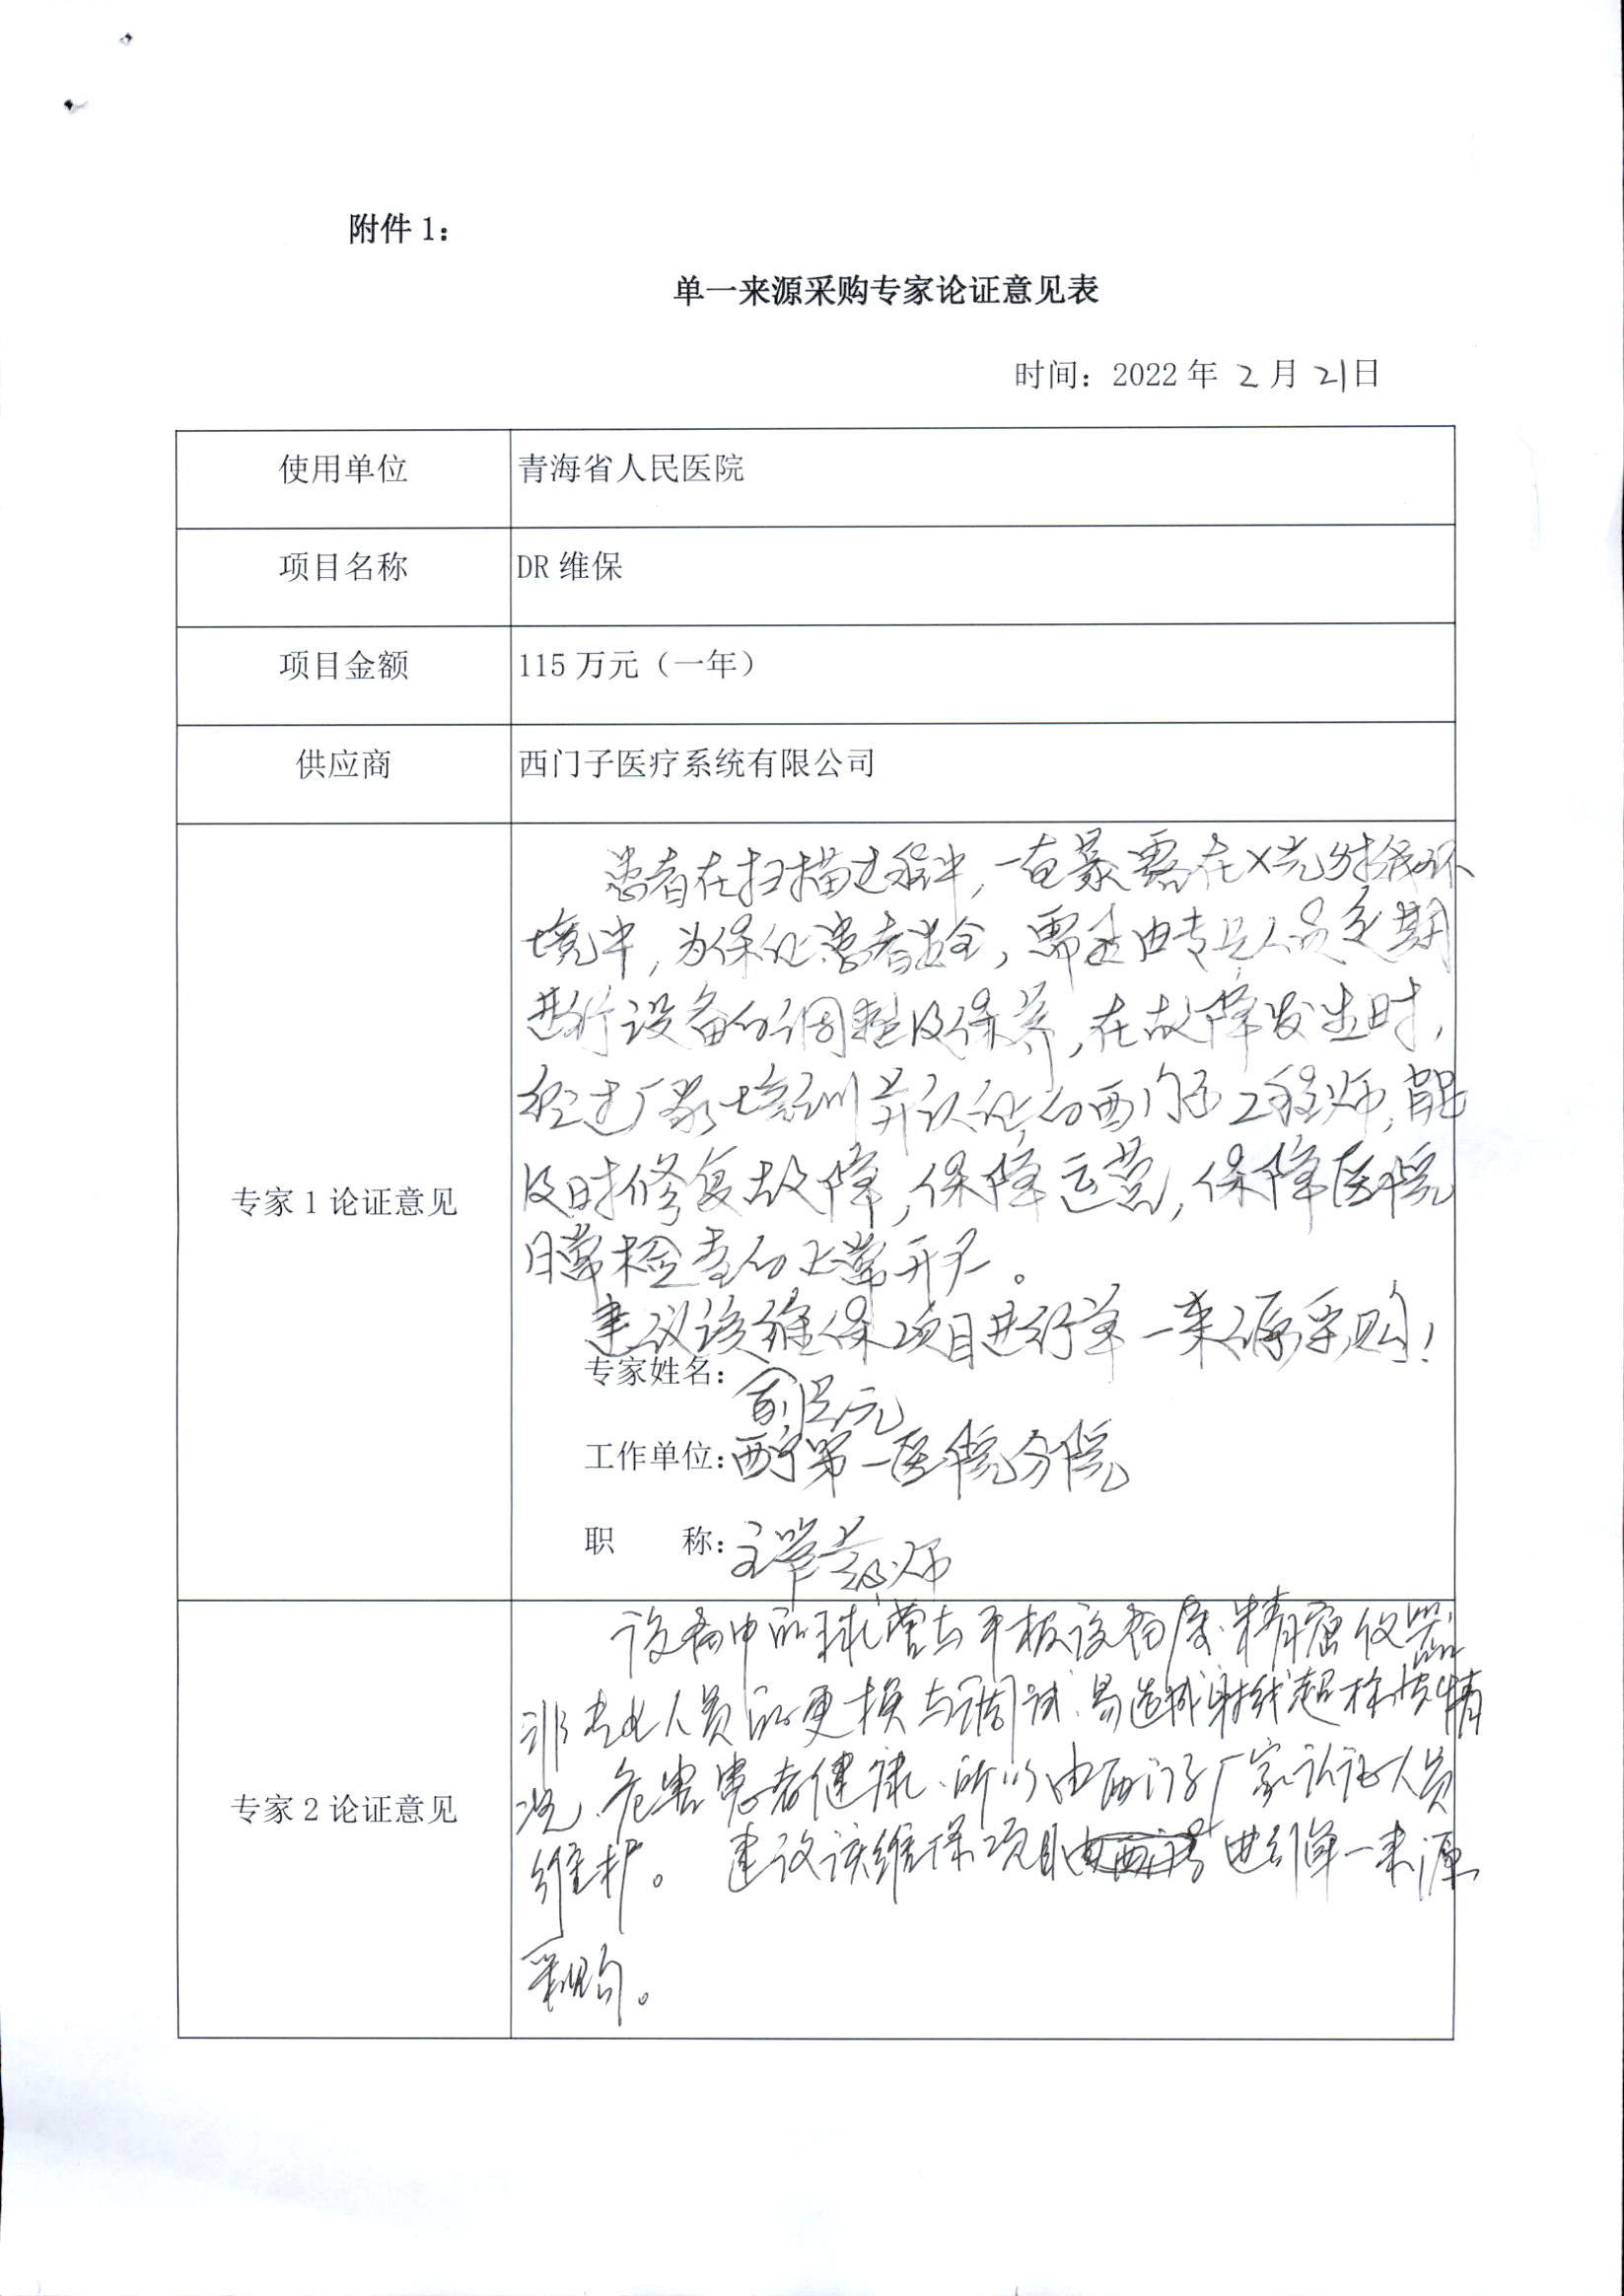 附件 1：
单一来源采购专家论证意见表
时间：2022 年 2 月 21日
使用单位
青海省人民医院
项目名称
DR 维保
项目金额
115 万元（一年）
供应商
西门子医疗系统有限公司
患者在扫描过程中，一直暴露在X光射线环
境中，为保证患者安全，需要由专业人员定期
进行设备的调整及保养，在故障发生时，
经过厂家培训并认证的西门子工程师，能
及时修复故障，保障运营，保障医院
日常检查的正常开展。
建议该维保项目进行单一来源采购！
专家1论证意见
专家姓名：
工作单位：西宁第一医院分院
职　　称：主管药师
设备中的球管与平板设备属精密仪器，
非专业人员的更换与调试，易造成射线超标的情
况，危害患者健康，所以由西门子厂家认证人员
维护。 建议该维保项目进行单一来源
采购。
专家2论证意见